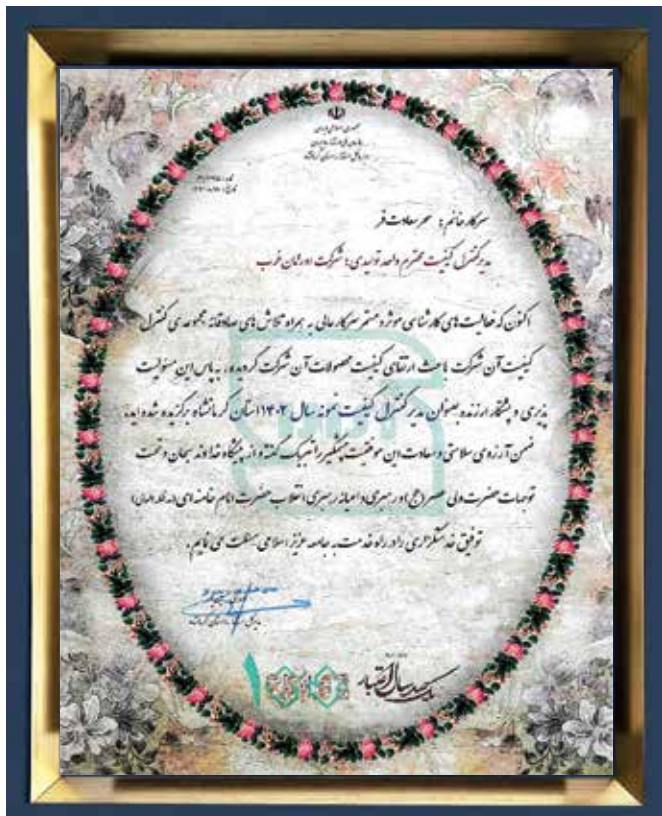 جمهوری اسلامی ایران
سازمان ملی استاندارد ایران
اداره کل استاندارد استان کرمانشاه
سرکار خانم ؛ سحر سعادت فر
مدیر کنترل کیفیت محترم واحد تولیدی ؛ شرکت اورامان غرب
اکنون که فعالیت های کارشناسی موثر و مستمر سرکارعالی به همراه تلاش های صادقانه مجموعه ی کنترل
کیفیت آن شرکت باعث ارتقای کیفیت محصولات آن شرکت گردیده و به پاس این مسئولیت
پذیری و پشتکار ارزنده بعنوان مدیر کنترل کیفیت نمونه سال ۱۴۰۲ استان کرمانشاه برگزیده شده اید،
ضمن آرزوی سلامتی و سعادت این موفقیت چشمگیر را تبریک گفته و از پیشگاه خداوند سبحان و تحت
توجهات حضرت ولی عصر (عج) و رهبری داهیانه رهبری انقلاب حضرت امام خامنه ای (مدظله العالی)
توفیق خدمتگزاری را در راه خدمت به جامعه عزیز اسلامی مسئلت می نمایم .
یکصد سال اعتبار